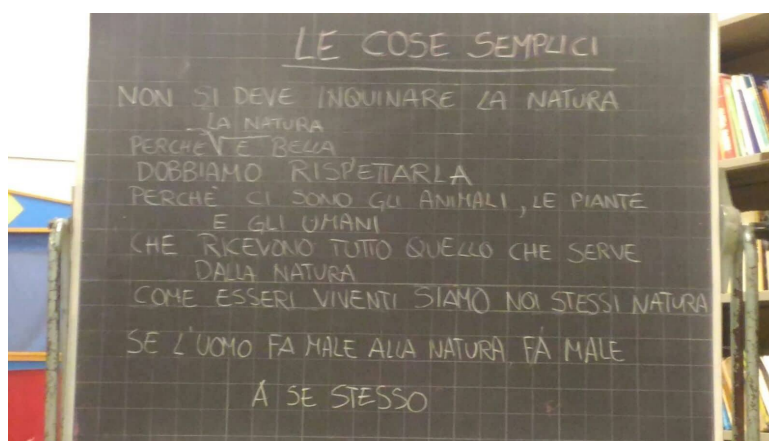 LE COSE SEMPLICI
NON SI DEVE INQUINARE LA NATURA
LA NATURA
PERCHÈ È BELLA
DOBBIAMO RISPETTARLA
PERCHÈ CI SONO GLI ANIMALI, LE PIANTE
E GLI UMANI
CHE RICEVONO TUTTO QUELLO CHE SERVE
DALLA NATURA
COME ESSERI VIVENTI SIAMO NOI STESSI NATURA
SE L'UOMO FA MALE ALLA NATURA FÀ MALE
A SE STESSO